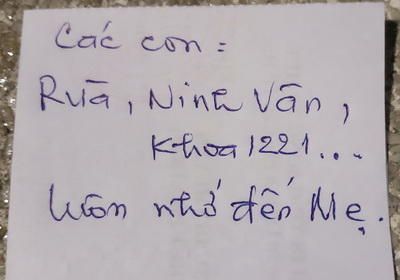 Các con :
Rùa, Ninh Vân,
Khoa 1221...
luôn nhớ đến Mẹ.